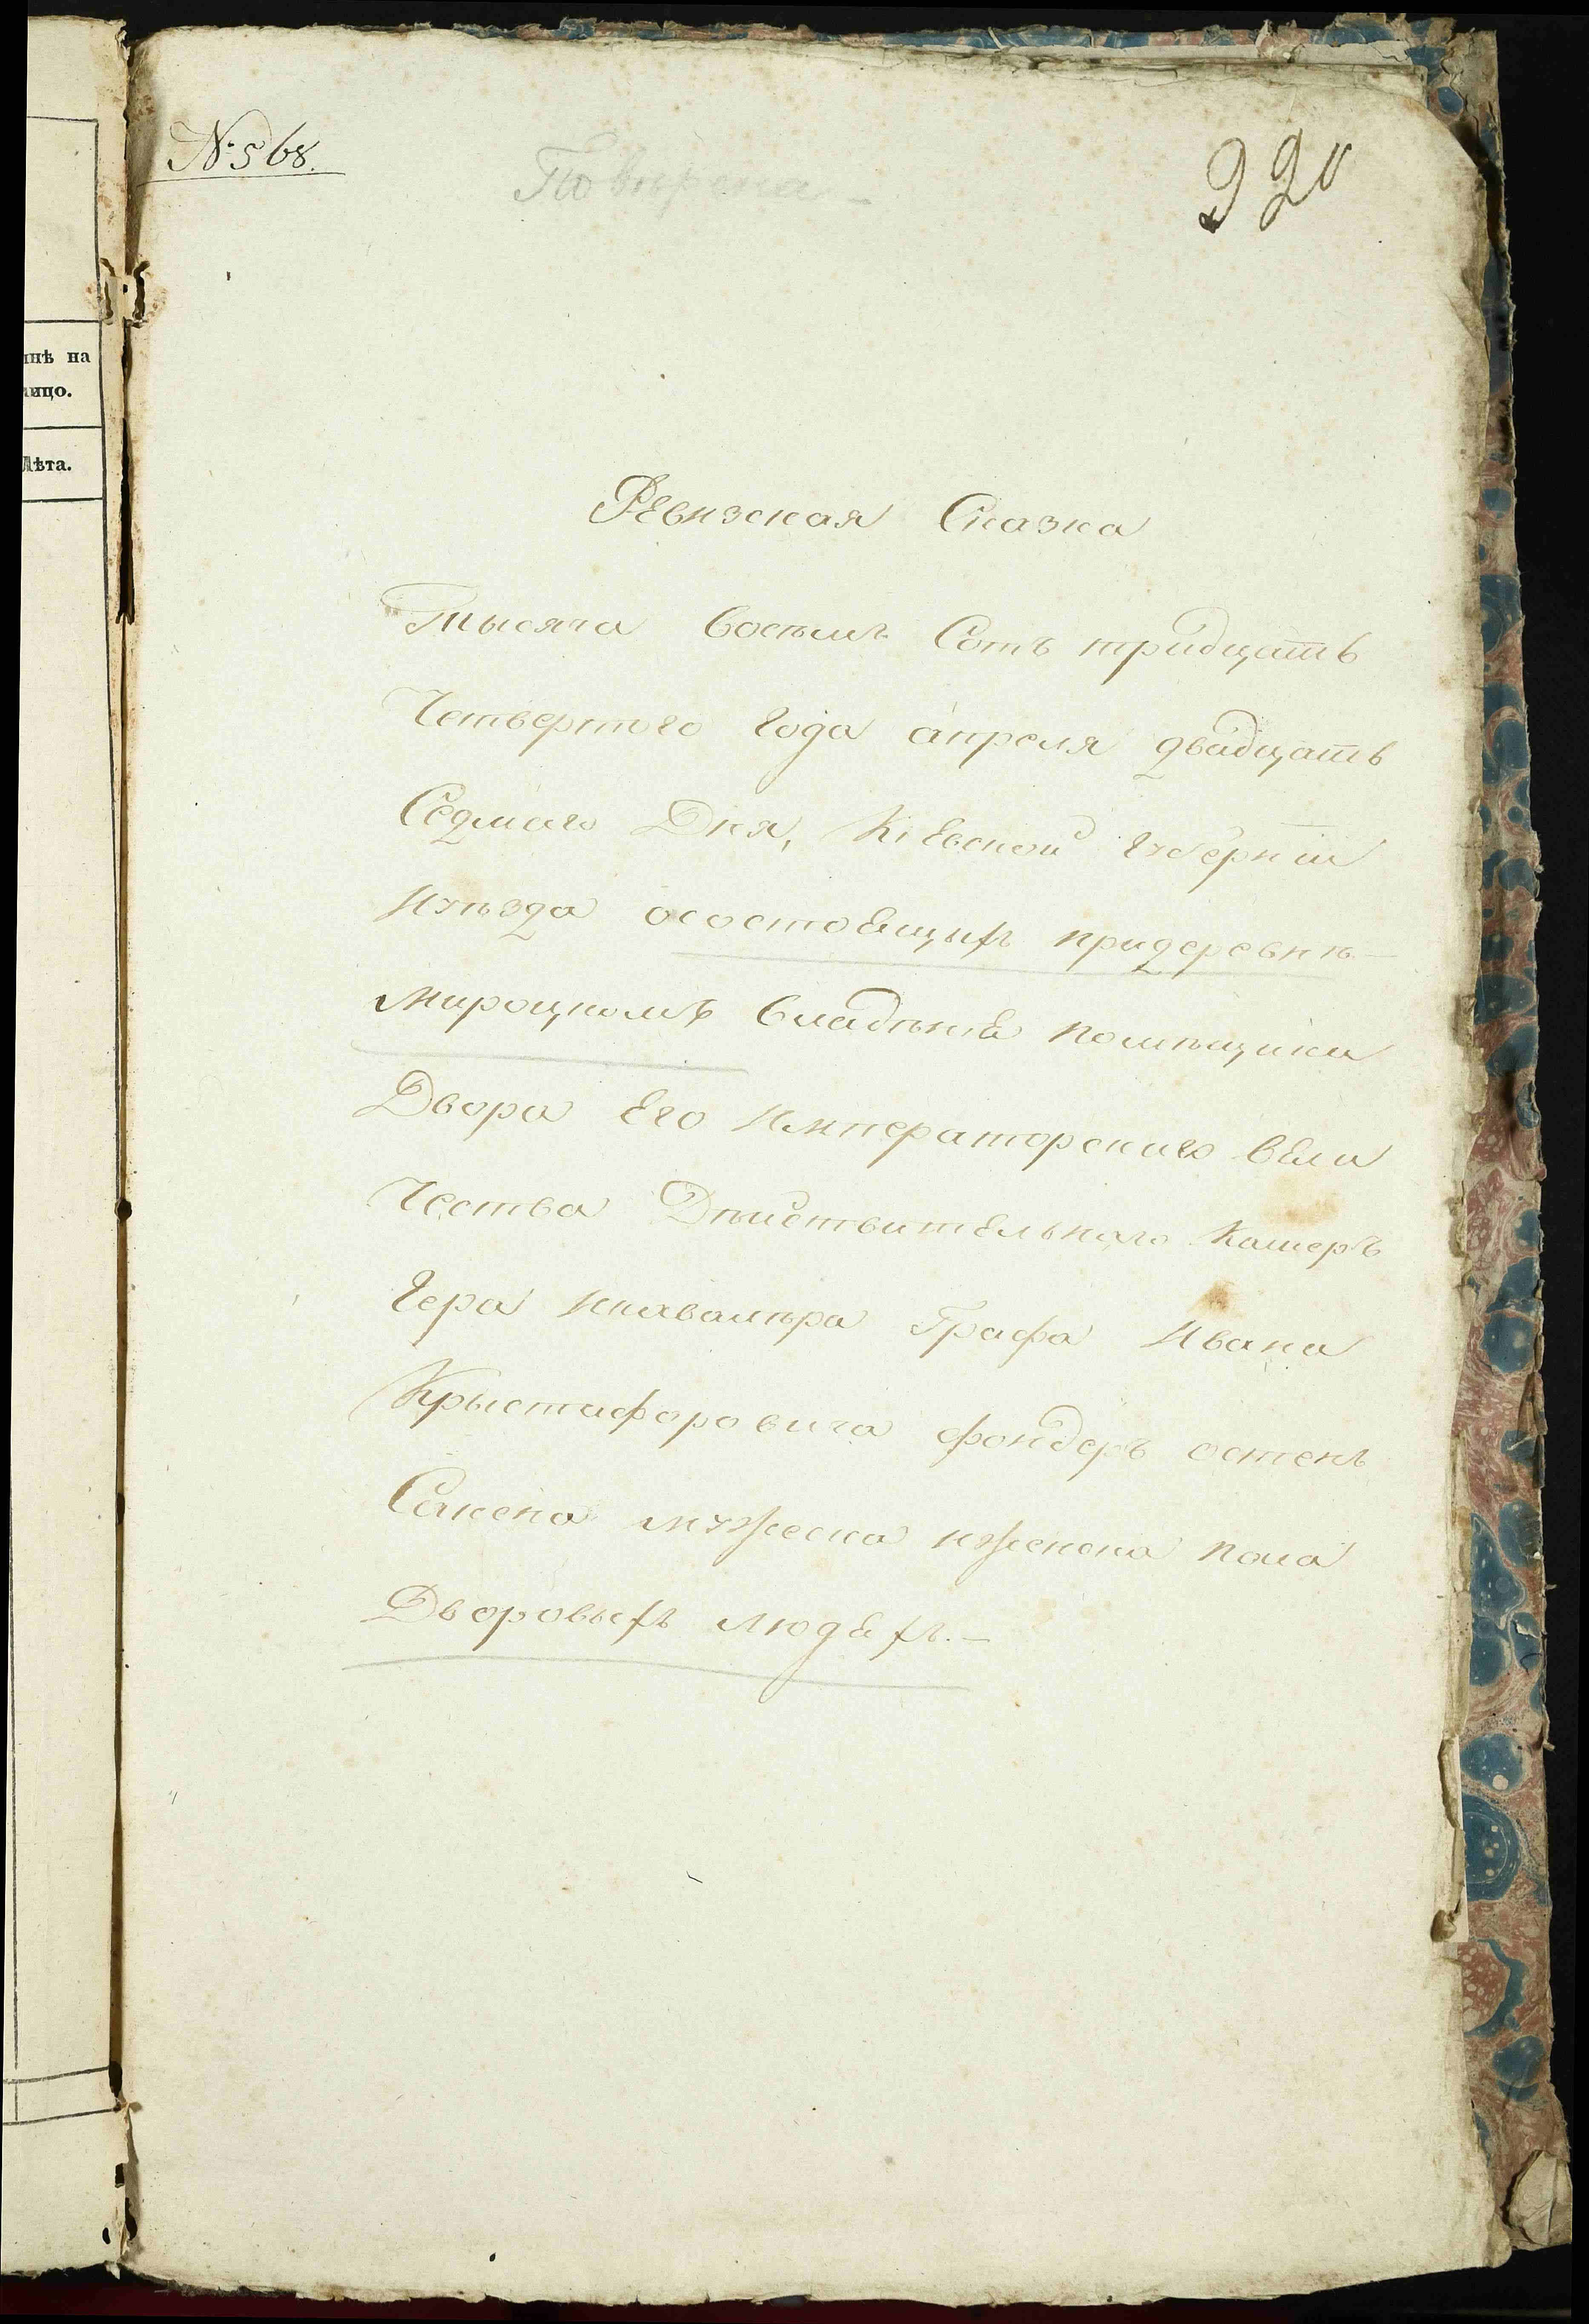 № 568.
Повѣрена
920
инѣ на
лицо.
Лѣта.
Ревизская Сказка
Тысяча восемъ Сотъ тридцать
Четвертого года апреля двадцать
Седмаго Дня, Кіевской губерніи
иуѣзда осостоещихъ придеревнѣ
мироцкомъ владѣніе помѣщика
Двора Его императорскаго вели
Чества Дѣйствительнаго Камеръ
Гера икавалѣра Графа Ивана
Крыстафоровича фондеръ остенъ
Сакена мужеска иженска пола
Дворовыхъ людехъ.